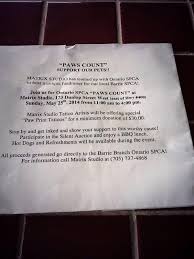 "PAWS COUNT"
SUPPORT OUR PETS!
MATRIX STUDIO has teamed up with Ontario SPCA!
to host a fundraiser for our local Barrie SPCA!
Join us for Ontario SPCA "PAWS COUNT" at
Matrix Studio, 113 Dunlop Street West
Sunday, May 25th, 2014 from 11am to 4:00 pm.
Matrix Studio Tattoo Artists will be offering special
"Paw Print Tattoos" for a minimum donation of $30.00.
Stop by and get inked and show your support to this worthy cause!
Participate in the Silent Auction and enjoy a BBQ lunch.
Hot Dogs and Refreshments will be available during the event.
All proceeds generated go directly to the Barrie Branch Ontario SPCA!
For information call Matrix Studio at (705) 737-4868